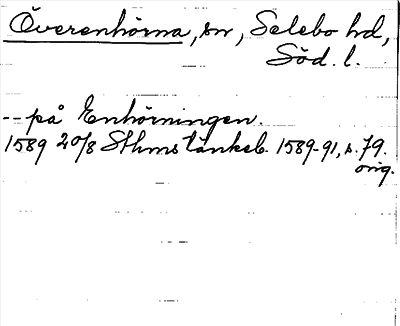 Överenhörna, sn, Selebo hd,
Söd. l.
-- på Enhörningen.
1589 20/8 Sthms tänkeb. 1589-91, s. 79.
orig.